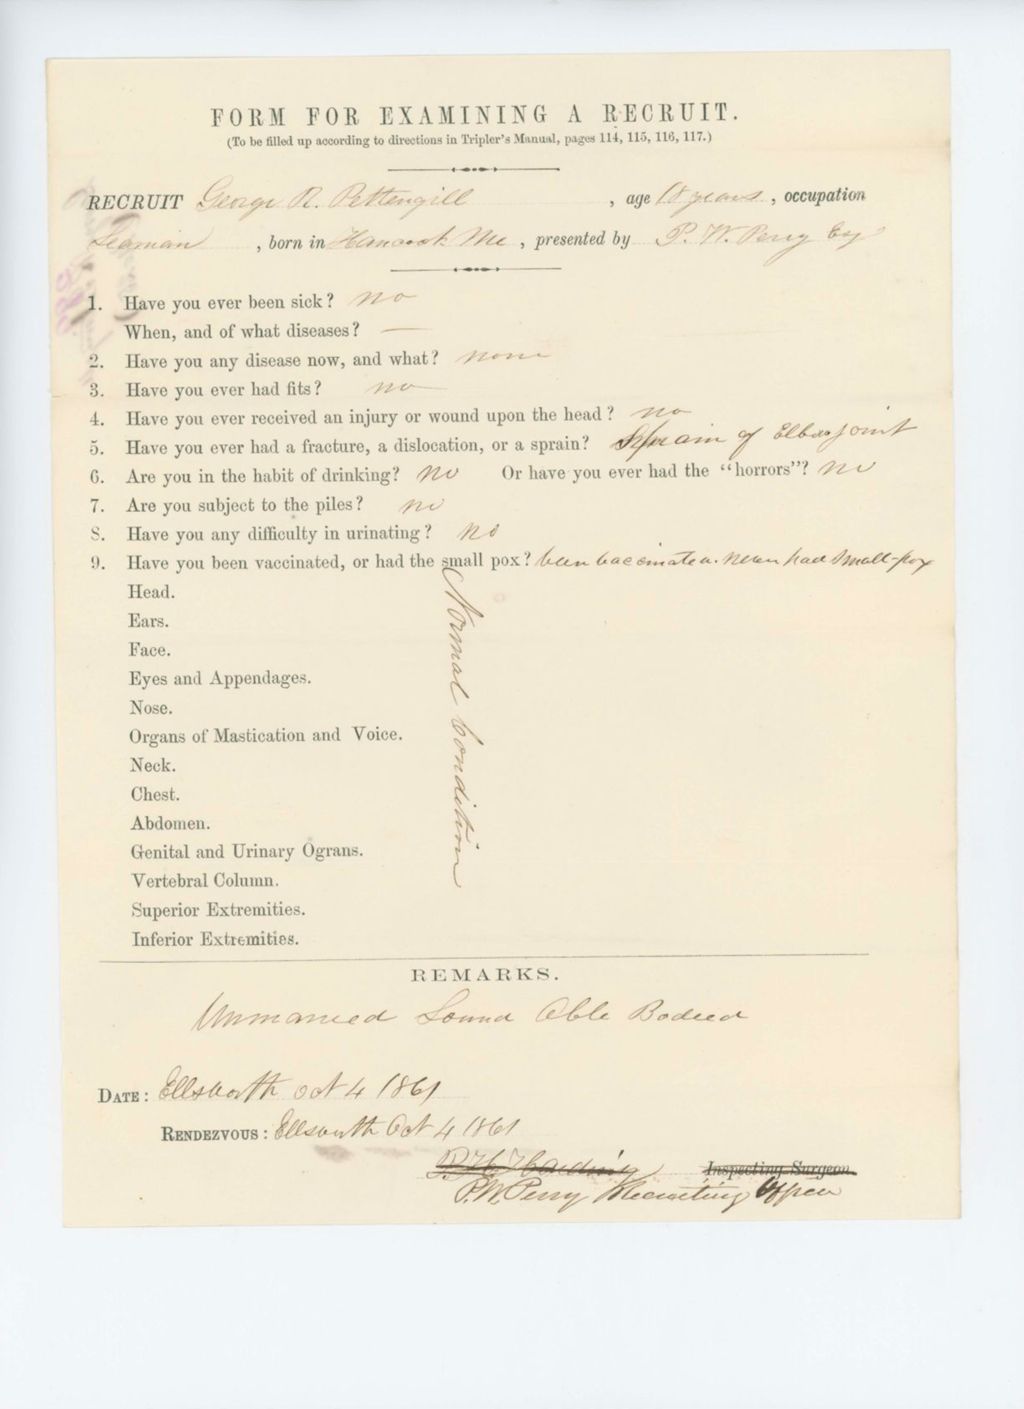 FORM FOR EXAMINING A RECRUIT.
(To be filled up according to directions in Tripler's Manual, pages 114, 115, 116, 117.)
RECRUIT George R. Pettengill , age 18 years , occupation
Seaman , born in Hancock Me , presented by P. W. Perry Esq
1. Have you ever been sick? no
When, and of what diseases? —
2. Have you any disease now, and what? none
3. Have you ever had fits? no
4. Have you ever received an injury or wound upon the head? no
5. Have you ever had a fracture, a dislocation, or a sprain? Sprain of Elbow joint
6. Are you in the habit of drinking? no Or have you ever had the "horrors"? no
7. Are you subject to the piles? no
8. Have you any difficulty in urinating? no
9. Have you been vaccinated, or had the small pox? been vaccinated. never had small-pox
Head.
Ears.
Face.
Eyes and Appendages.
Nose.
Organs of Mastication and Voice.
Neck.
Chest.
Abdomen.
Genital and Urinary Ograns.
Vertebral Column.
Superior Extremities.
Inferior Extremities.
Normal Condition
REMARKS.
Unmarried Sound Able Bodied
DATE: Ellsworth Oct 4 1861
RENDEZVOUS: Ellsworth Oct 4 1861
P. H. Harding Inspecting Surgeon.
P. W. Perry Recruiting Officer